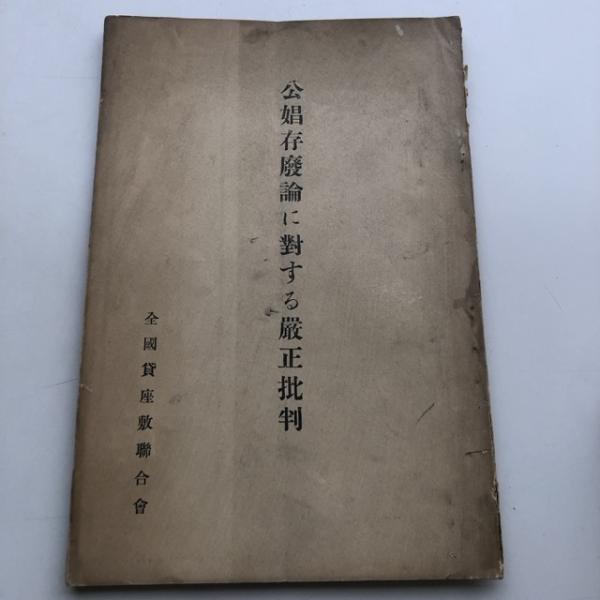 公娼存廢論に對する嚴正批判
全國貸座敷聯合會